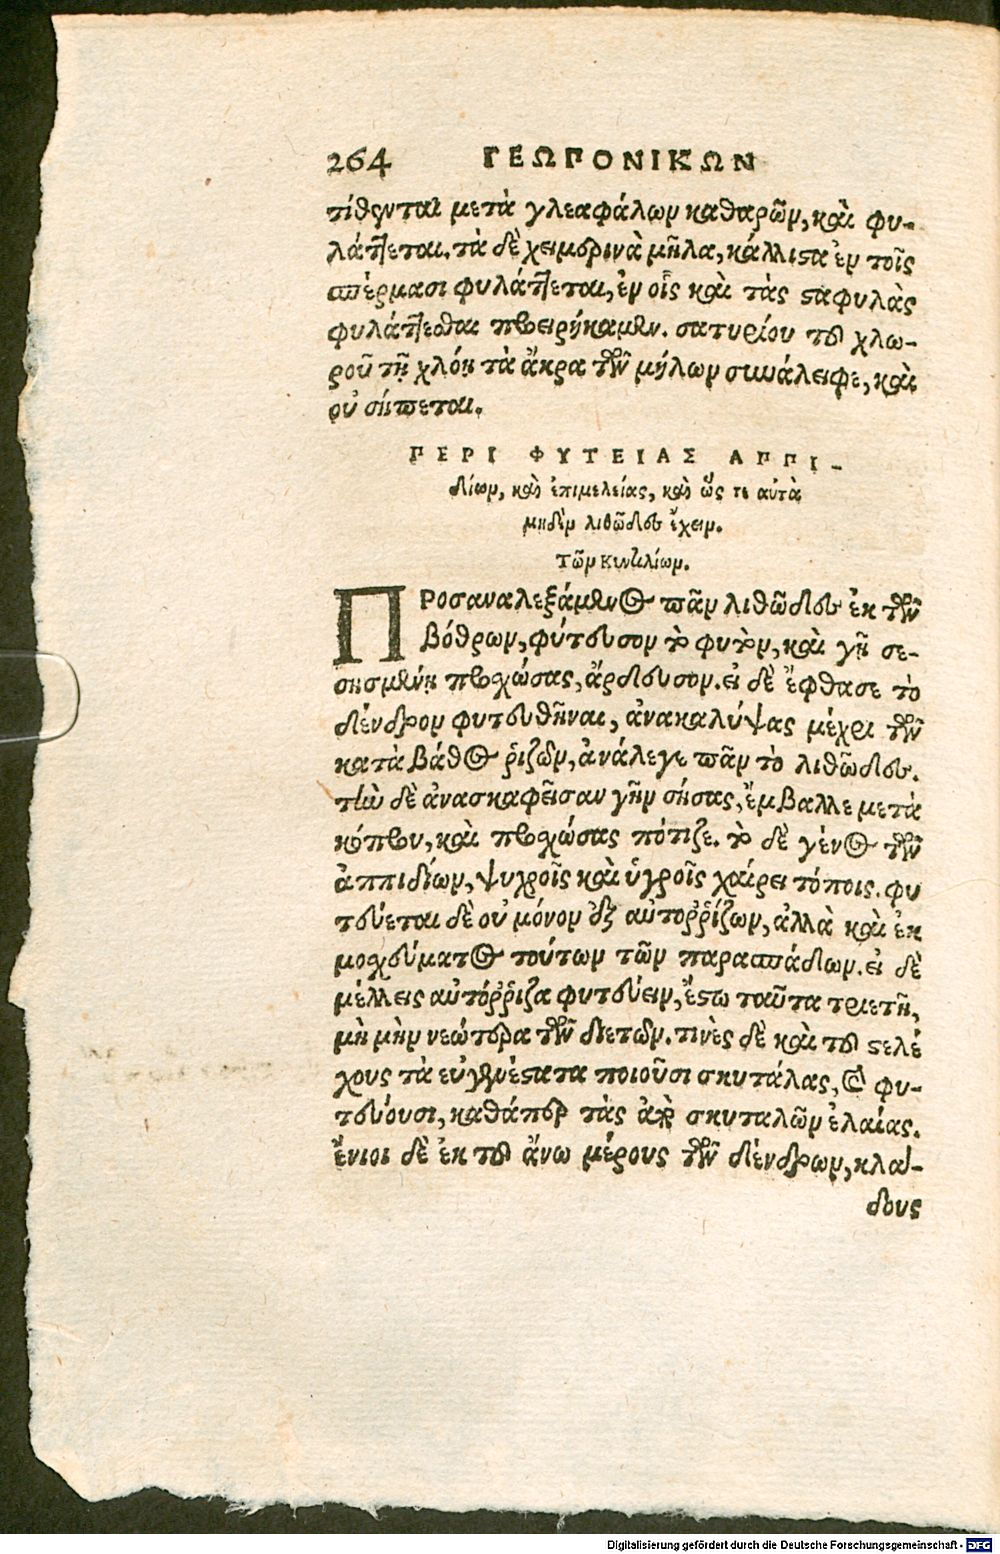 264 ΓΕΩΠΟΝΙΚΩΝ
τίθενται μετὰ γλεαφάλων καθαρῶν, καὶ φυ-
λάττεται. τὰ δὲ χειμερινὰ μῆλα, κάλλιστα ἐν τοῖς
σπέρμασι φυλάττεται, ἐν οἷς καὶ τὰς σταφυλὰς
φυλάττεσθαι προειρήκαμεν. σατυρίου τοῦ χλω-
ροῦ τῇ χλόῃ τὰ ἄκρα τῶν μήλων συνάλειφε, καὶ
οὐ σήπεται.
ΠΕΡΙ ΦΥΤΕΙΑΣ ΑΠΠΙ-
δίων, καὶ ἐπιμελείας, καὶ ὥς τε αὐτὰ
μηδὲν λιθῶδες ἔχειν.
Τῶν Κυντιλίων.
ΠΡΟΣαναλεξάμενος πᾶν λιθῶδες ἐκ τῶν
βόθρων, φύτευσον τὸ φυτὸν, καὶ γῇ σε-
σησμένῃ προχώσας, ἄρδευσον. εἰ δὲ ἔφθασε τὸ
δένδρον φυτευθῆναι, ἀνακαλύψας μέχρι τῶν
κατὰ βάθος ῥιζῶν, ἀνάλεγε πᾶν τὸ λιθῶδες.
τὴν δὲ ἀνασκαφεῖσαν γῆν σήσας, ἔμβαλλε μετὰ
κόπρου, καὶ προχώσας πότιζε. τὸ δὲ γένος τῶν
ἀππιδίων, ψυχροῖς καὶ ὑγροῖς χαίρει τόποις. φυ
τεύεται δὲ οὐ μόνον ἐξ αὐτοῤῥίζων, ἀλλὰ καὶ ἐκ
μοσχεύματος τούτων τῶν παρασπάδων. εἰ δὲ
μέλλεις αὐτόῤῥιζα φυτεύειν, ἔστω ταῦτα τριετῆ,
μὴ μὴν νεώτερα τῶν διετῶν. τινὲς δὲ καὶ τοῦ στελέ
χους τὰ εὐγενέστατα ποιοῦσι σκυτάλας, καὶ φυ-
τεύουσι, καθάπερ τὰς ἀπὸ σκυταλῶν ἐλαίας.
ἔνιοι δὲ ἐκ τοῦ ἄνω μέρους τῶν δένδρων, κλά-
δους
Digitalisierung gefördert durch die Deutsche Forschungsgemeinschaft - DFG